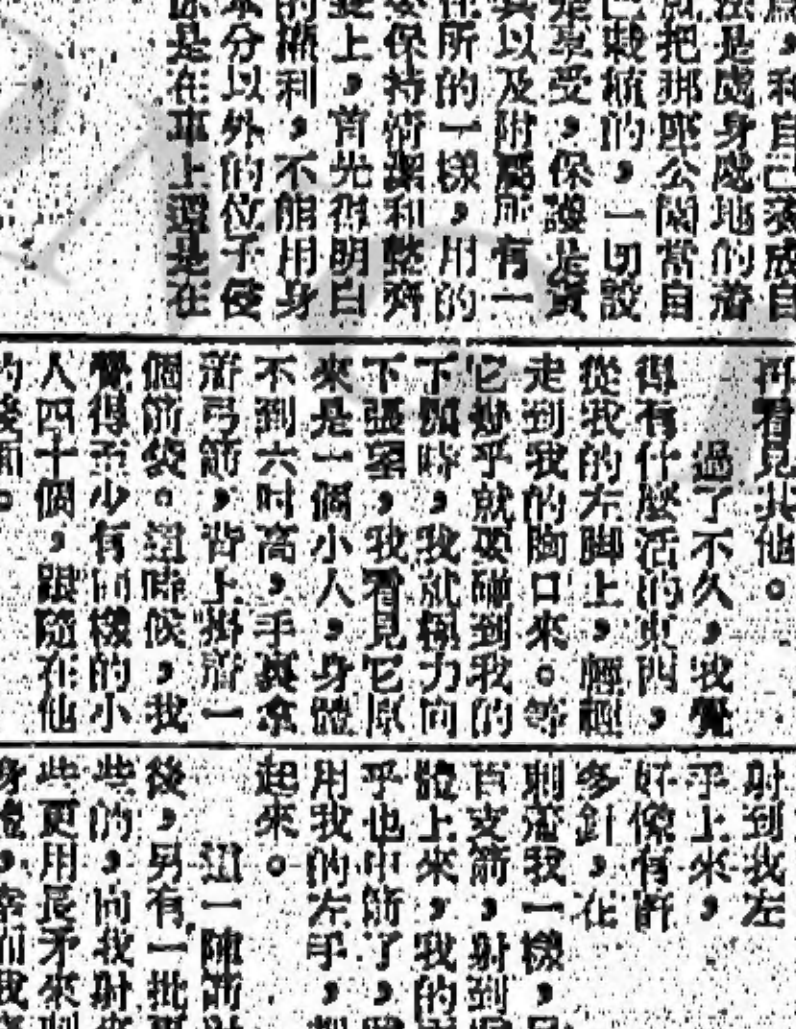 為，和自己家成自
法是處身處地的着
就把那座公園當自
己栽植的，一切設
是享受，保護是責
具以及附屬所有一
住所的一樣，用的
要保持清潔和整齊
要上，首先得明白
的權利，不能用身
本分以外的位子使
你是在車上還是在
再看見其他。
過了不久，我覺
得有什麼活的東西，
從我的左脚上，輕輕
走到我的胸口來。等
它幾乎就要碰到我的
下頷時，我就極力向
下張望，我看見它原
來是一個小人，身體
不到六吋高，手裏拿
着弓箭，背上掛着一
個箭袋。這時候，我
覺得至少有同樣的小
人四十個，跟隨在他
的後面。
射到我左
手上來，
好像有許
多針，在
刺着我一樣，
百支箭，射到
體上來，我的
乎也中箭了，
用我的左手，
起來。
這一陣箭
後，另有一批
些的，向我射來
些更用長矛來刺
身體，幸而我